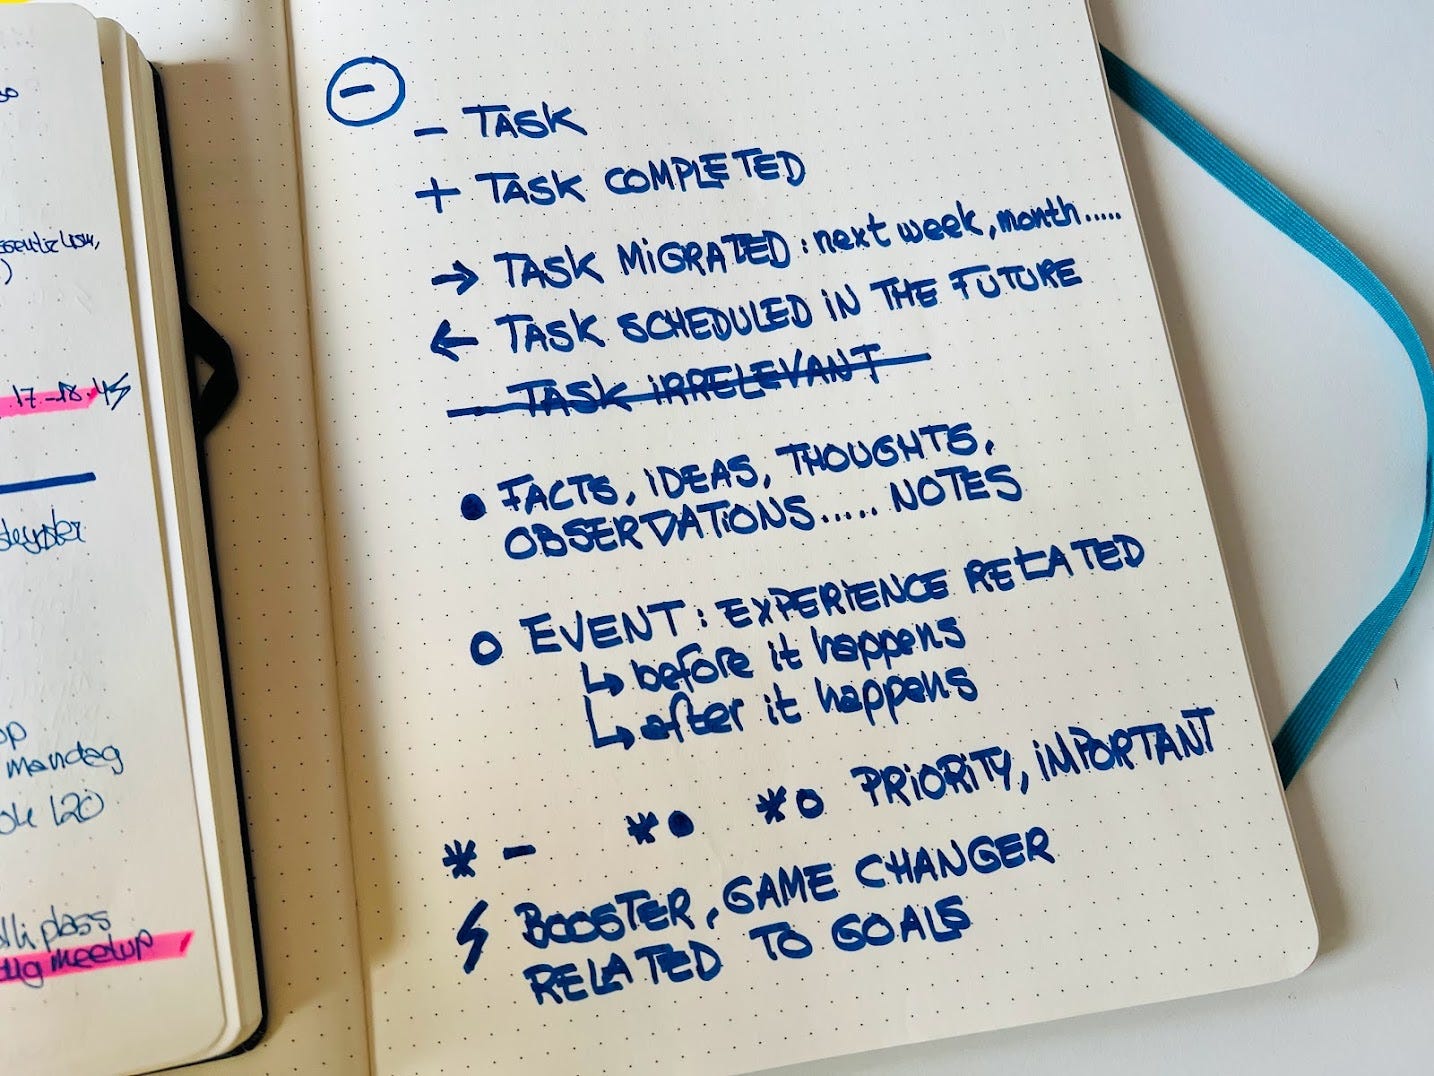 17-18.45
mandag
120
plass
meetup
–
– TASK
+ TASK COMPLETED
→ TASK MiGRATED : next week, month.....
← TASK SCHEDULED iN THE FUTURE
– TASK iRRELEVANT
● FACTS, iDEAS, THOUGHTS,
OBSERVATiONS..... NOTES
○ EVENT : EXPERiENCE RELATED
↳ before it happens
↳ after it happens
* – * ● * ○ PRiORiTY, iMPORTANT
⚡ BOOSTER, GAME CHANGER
RELATED TO GOALS